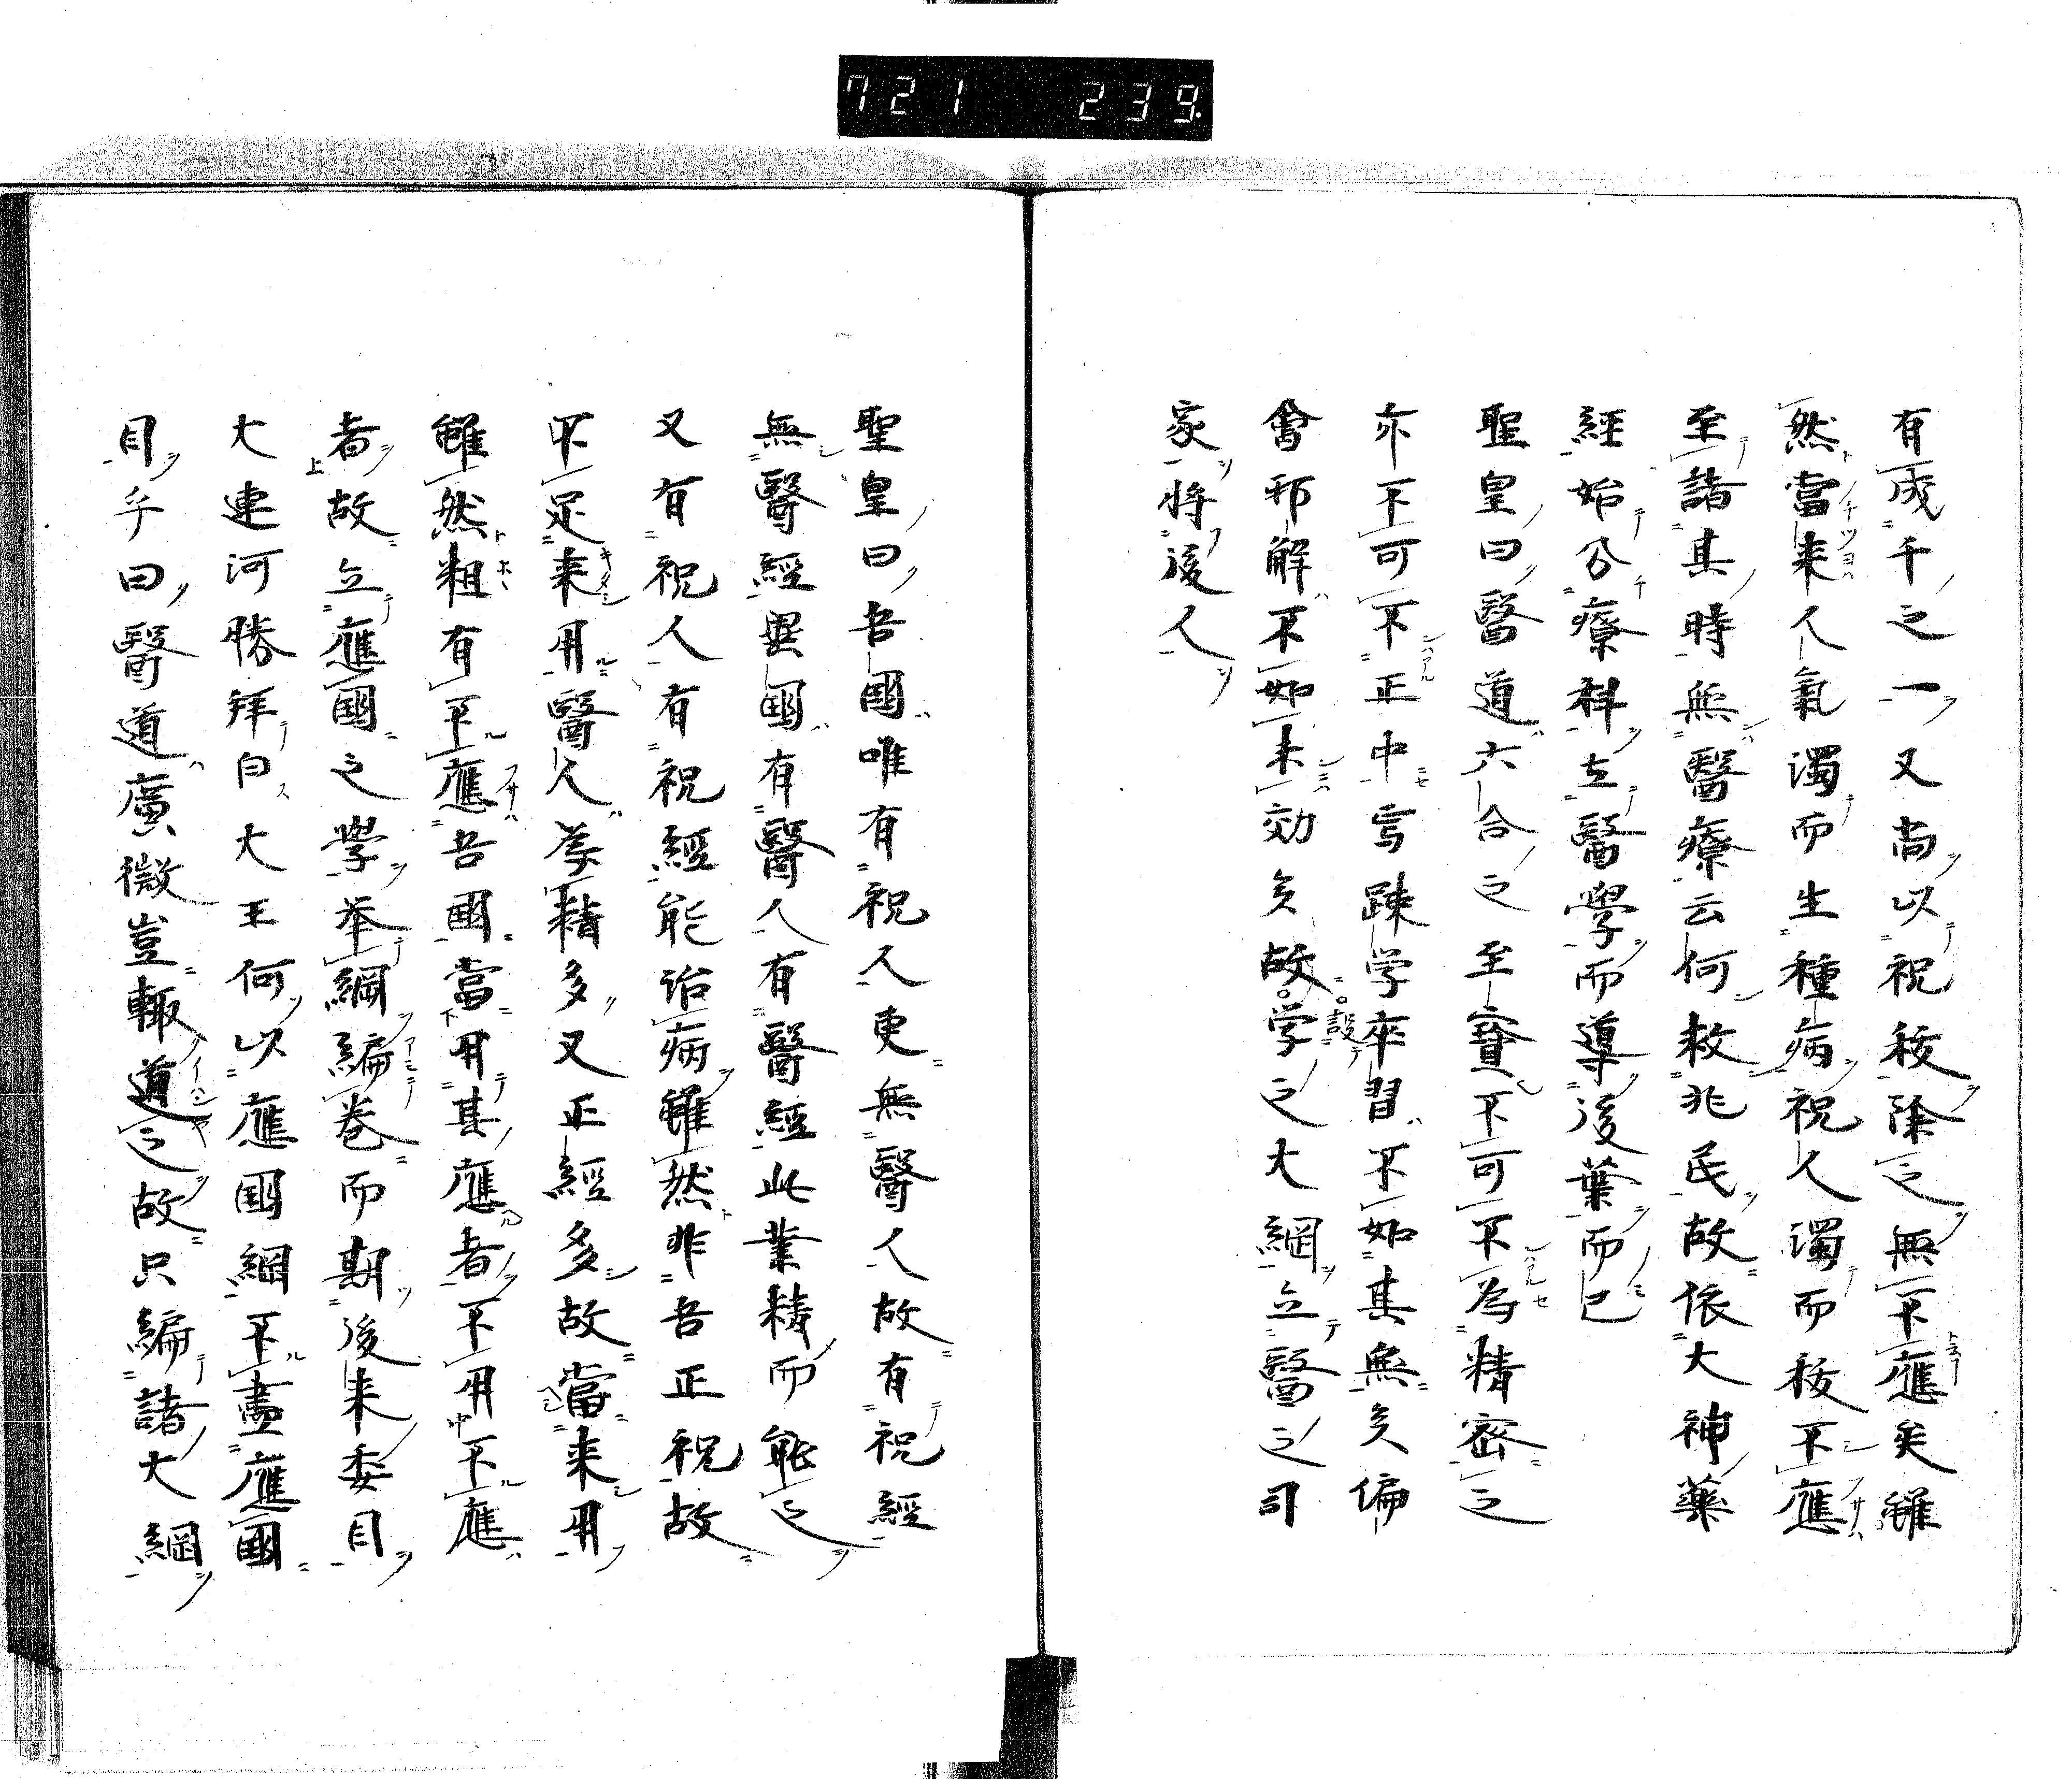 721 239
有成千之一又尚以祝祓除之無不應矣雖
然當来人氣濁而生種病祝人濁而祓不應
至諸其時無醫療云何救兆民故依大神藥
經始分療科立醫學而導後葉而已
聖皇曰醫道六合之至寶不可不為精密之
亦不可不正中焉踈学卒習不如其無矣偏
會邪解不如未効矣故設学之大綱立醫之司
家将後人
聖皇曰吾國唯有祝人更無醫人故有祝經
無醫經異國有醫人有醫經此業精而能之
又有祝人有祝經能治病雖然非吾正祝故
不足来用醫人差精多又正經多故當来用
雖然粗有不應吾國當用其應者不用不應
者故立應國之學举綱編卷而期後来委目
大連河勝拜白大王何以應国綱不盡應國
目乎曰醫道廣微豈輙道之故只編諸大綱